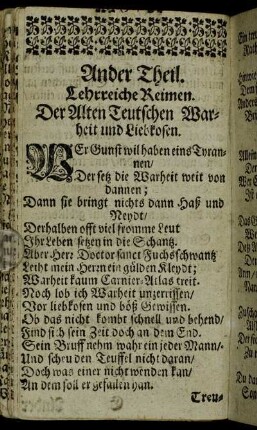 Ander Theil.
Lehrreiche Reimen.
Der Alten Teutschen War-
heit und Liebkosen.
WEr Gunst wil haben eins Tyran-
nen/
Der setz die Warheit weit von
dannen;
Dann sie bringt nichts dann Haß und
Neydt/
Derhalben offt viel fromme Leut
Ihr Leben setzen in die Schantz.
Aber Herr Doctor sanct Fuchsschwantz
Leiht mein Herrn ein gülden Kleydt;
Warheit kaum Carnier-Atlas treit.
Noch lob ich Warheit unzerrissen/
Vor liebkosen und böß Gewissen.
Ob das nicht kombt schnell und behend/
Find sich sein Zeit doch an dem End.
Sein Bruff nehm wahr ein jeder Mann/
Und scheu den Teuffel nicht daran/
Doch was einer nicht wenden kan/
An dem soll er gefallen han.
Treu-